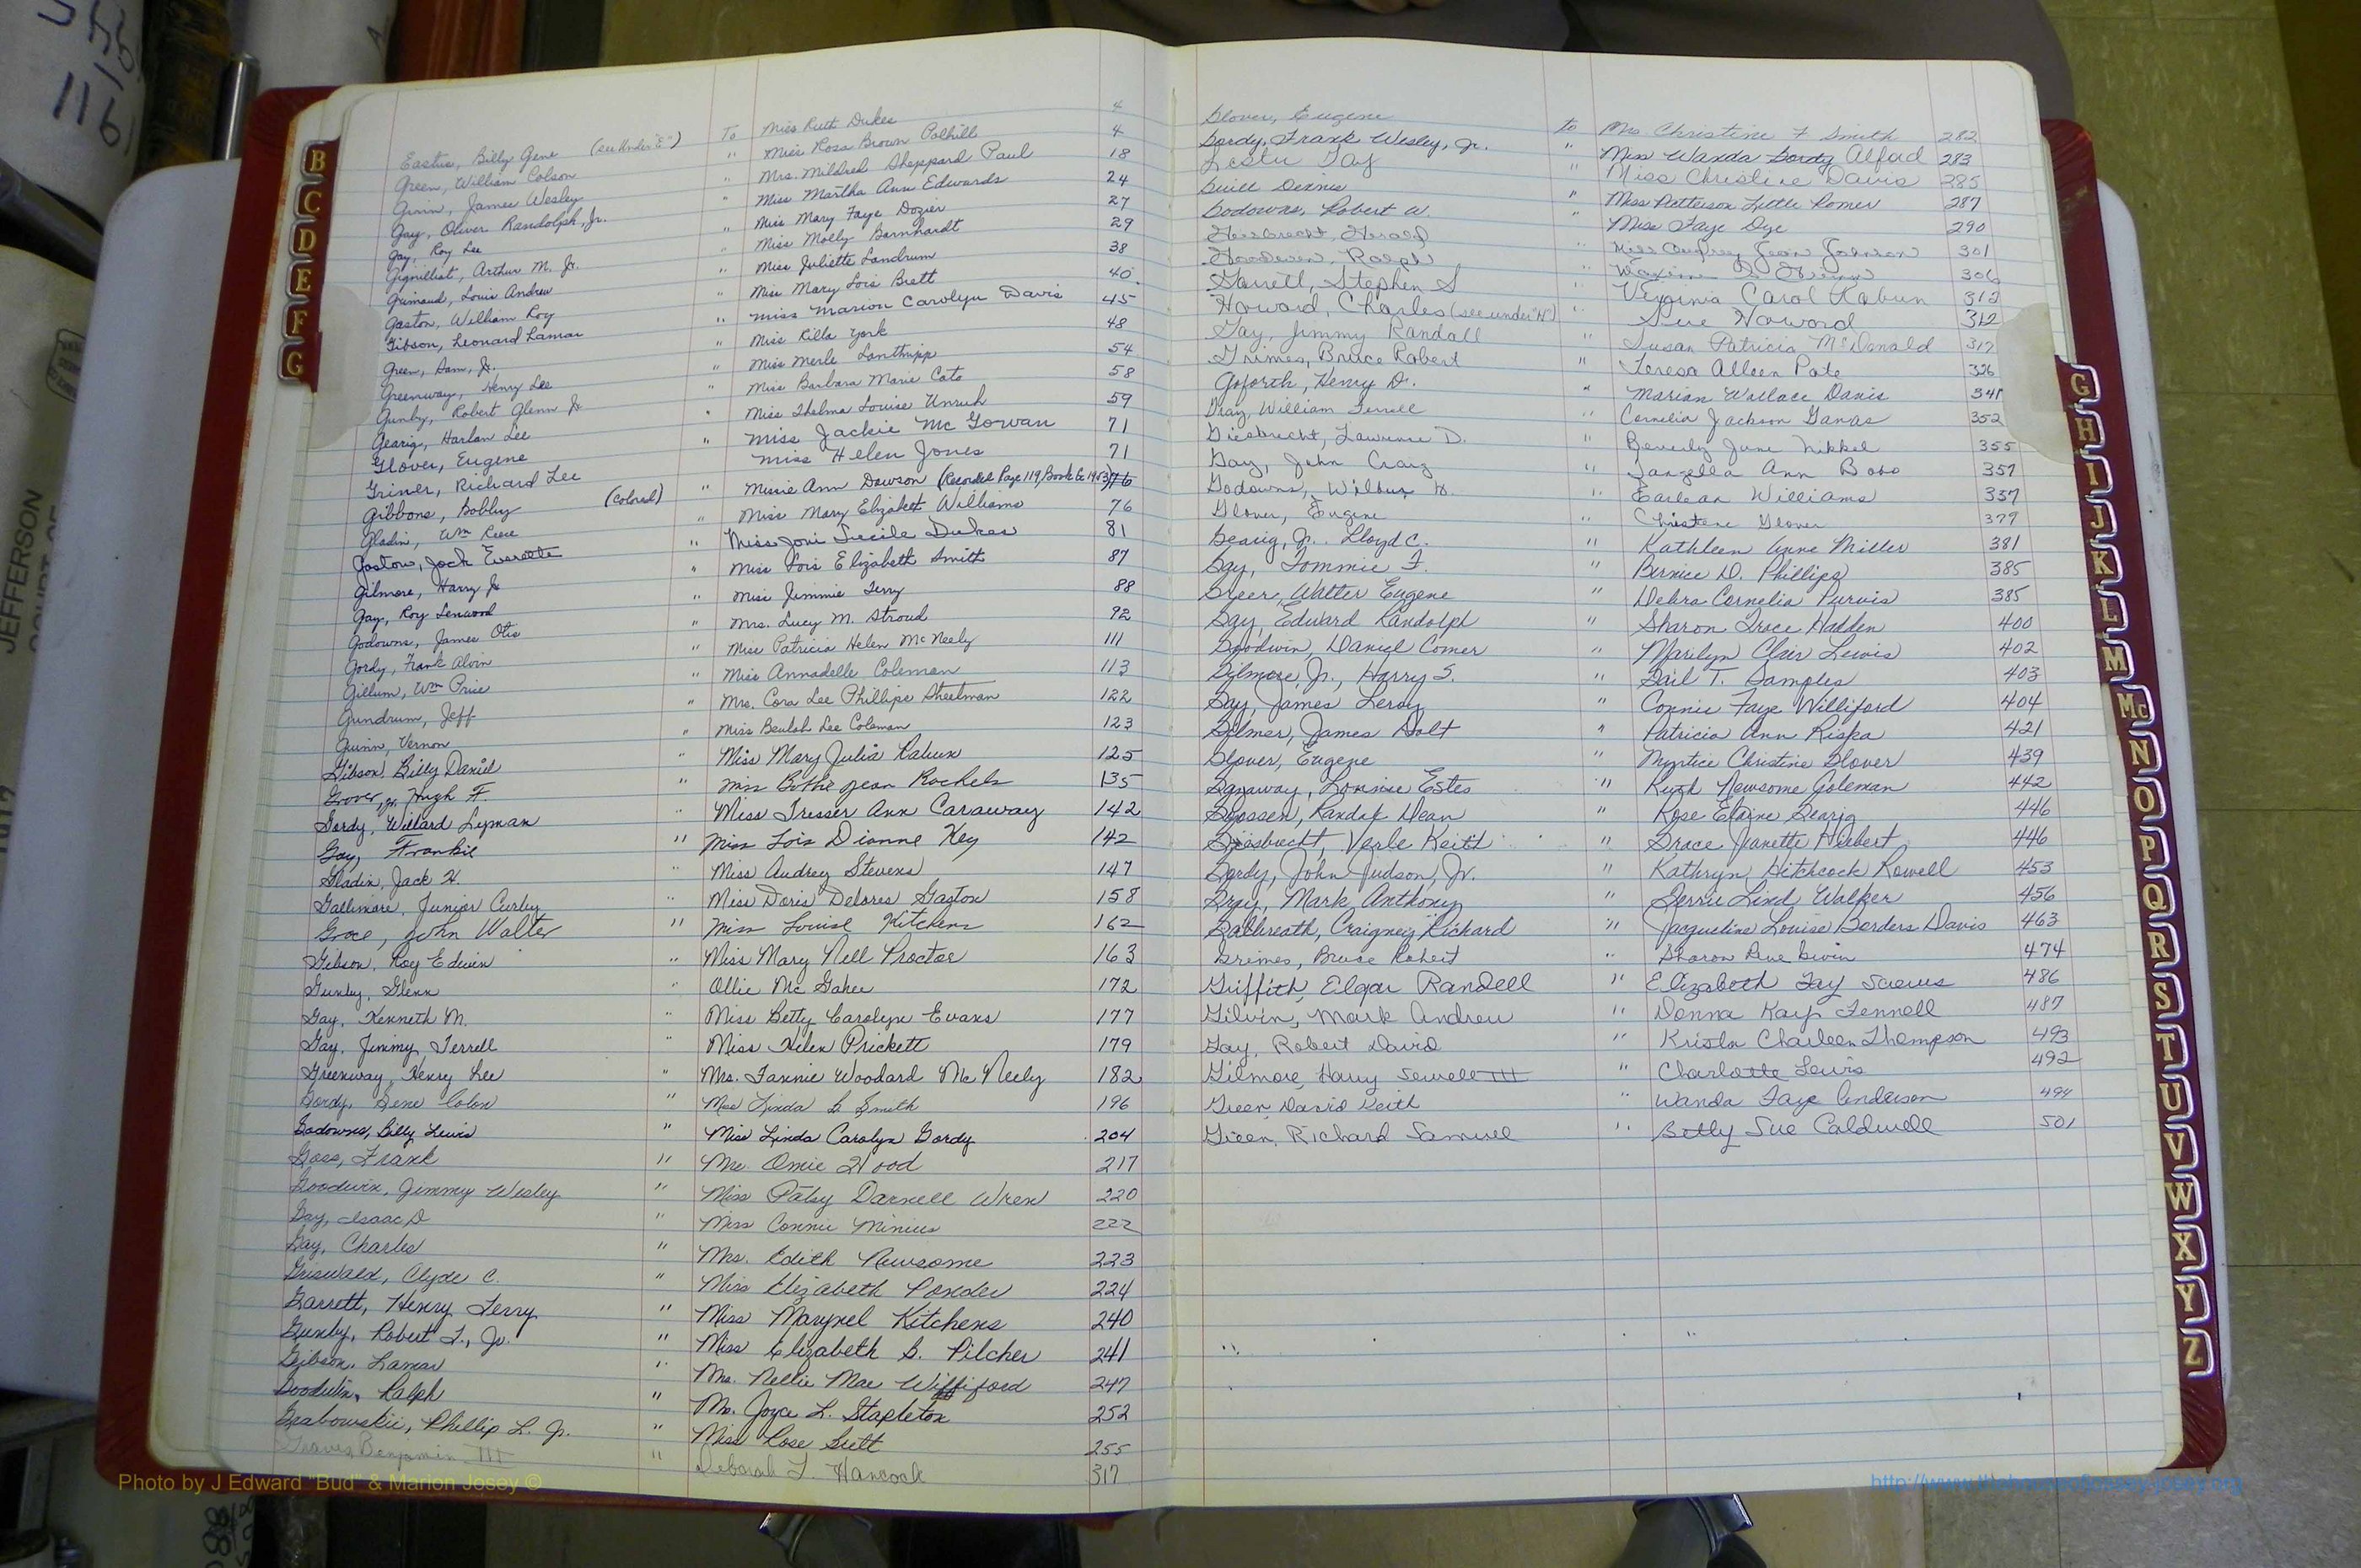 Eastus, Billy Gene (see under "E") To Miss Ruth Dukes 4
Green, William Colson " Miss Rosa Brown Polhill 4
Givin, James Wesley " Mrs. Mildred Sheppard Paul 18
Gay, Oliver Randolph, Jr. " Miss Martha Ann Edwards 24
Gay, Roy Lee " Miss Mary Faye Dozier 27
Gignilliat, Arthur M. Jr. " Miss Molly Barnhardt 29
Grimaud, Louis Andrew " Miss Juliette Landrum 38
Gaston, William Roy " Miss Mary Lois Brett 40
Gibson, Leonard Lamar " Miss Marion Carolyn Davis 45
Green, Sam, Jr. " Miss Rilla York 48
Greenway, Henry Lee " Miss Merle Lanthripp 54
Gunby, Robert Glenn Jr " Miss Barbara Marie Cato 58
Gearig, Harlan Lee " Miss Thelma Louise Unruh 59
Glover, Eugene " Miss Jackie McGowan 71
Griner, Richard Lee Miss Helen Jones 71
Gibbons, Bobby (Colored) " Missie Ann Dawson (Recorded Page 119, Book Co 1953) 76
Gladin, Wm Reese " Miss Mary Elizabeth Williams 76
Gaston, Jack Everette " Miss Joni Lucile Dukes 81
Gilmore, Harry Jr " Miss Lois Elizabeth Smith 87
Gay, Roy Lenwood " Miss Jimmie Terry 88
Godowns, James Otis " Mrs. Lucy M. Stroud 92
Gordy, Frank Alvin " Miss Patricia Helen McNeely 111
Gillum, Wm Price " Miss Annadelle Coleman 113
Gundrum, Jeff " Mrs. Cora Lee Phillips Sheelman 122
Guinn, Vernon " Miss Beulah Lee Coleman 123
Gibson, Billy Daniel " Miss Mary Julia Rabun 125
Grover, Jr. Hugh F. " Miss Bothie Jean Rachels 135
Gordy, Willard Lyman " Miss Tresser Ann Caraway 142
Gay, Frankie " Miss Lois Dianne Key 142
Gladin, Jack H. " Miss Audrey Stevens 147
Gallimore, Junior Curley " Miss Doris Delores Gaston 158
Groce, John Walter " Miss Louise Kitchens 162
Gibson, Roy Edwin " Miss Mary Nell Proctor 163
Gunby, Glenn " Ollie McGahee 172
Gay, Kenneth M. " Miss Betty Carolyn Evans 177
Gay, Jimmy Terrell " Miss Helen Prickett 179
Greenway, Henry Lee " Mrs. Fannie Woodard McNeely 182
Gordy, Gene Colon " Miss Linda B. Smith 196
Godowns, Billy Lewis " Miss Linda Carolyn Gordy 204
Goss, Frank " Mrs. Omie Hood 217
Goodwin, Jimmy Wesley " Miss Patsy Darnell Wren 220
Gay, Isaac D " Miss Connie Minius 222
Gay, Charles " Mrs. Edith Newsome 223
Griswald, Clyde C. " Miss Elizabeth Ponder 224
Garrett, Henry Terry " Miss Marynel Kitchens 240
Gunby, Robert L., Jr. " Miss Elizabeth B. Pilcher 241
Gibson, Lamar " Mrs. Nellie Mae Williford 247
Goodwin, Ralph " Mrs. Joyce L. Stapleton 252
Grabowskii, Phillip L. Jr. " Miss Rose Britt 255
Graves, Benjamin III " Deborah L. Hancock 317
Glover, Eugene to Mrs Christine F Smith 282
Gordy, Frank Wesley, Jr. " Miss Wanda Gordy Alford 283
Leslie Gay " Miss Christine Davis 285
Guill Dennis " Miss Patterson Little Romer 287
Godowns, Robert W. " Miss Faye Dye 290
Giesbrecht, Herald " Miss Audrey Jean Johnson 301
Goodwin, Ralph " Maxine 306
Garrett, Stephen S " Virginia Carol Rabun 312
Howard, Charles (see under "H") " Sue Howard 312
Gay, Jimmy Randall " Susan Patricia McDonald 317
Grimes, Bruce Robert " Teresa Alleen Pate 326
Goforth, Henry D. " Marian Wallace Davis 341
Gray, William Terrell " Cornelia Jackson Ganas 352
Giesbrecht, Lawrence D. " Beverly June Nikkel 355
Gay, John Craig " Tangella Ann Bobo 357
Godowns, Wilbur H. " Earlean Williams 357
Glover, Eugene " Christene Glover 379
Gearig, Jr. Lloyd C. " Kathleen Anne Miller 381
Gay, Tommie F. " Bernice D. Phillips 385
Greer, Walter Eugene " Debra Cornelia Purvis 385
Gay, Edward Randolph " Sharon Grace Hadden 400
Goodwin, Daniel Comer " Marilyn Clair Lewis 402
Gilmore, Jr., Harry S. " Gail T. Samples 403
Gay, James Leroy " Connie Faye Williford 404
Gilmer, James Holt " Patricia Ann Rispa 421
Glover, Eugene " Myrtice Christine Glover 439
Garaway, Lonnie Estes " Ruth Newsome Coleman 442
Goossen, Randal Dean " Rose Elaine Gearig 446
Giesbrecht, Verle Keith " Grace Jeanette Hiebert 446
Gordy, John Judson, Jr. " Kathryn Hitchcock Rowell 453
Gray, Mark Anthony " Gerrie Lind Walker 456
Galbreath, Craigneig Richard " Jacqueline Louise Borders Davis 463
Gremes, Bruce Robert " Sharon Rene Givin 474
Griffith, Elgar Randell " Elizabeth Fay Screws 486
Gilvin, Mark Andrew " Donna Kay Fennell 487
Gay, Robert David " Krista Charleen Thompson 493
Gilmore, Harry Sewell III " Charlotte Lewis 492
Green, David Keith " Wanda Faye Anderson 494
Green, Richard Samuel " Betty Sue Caldwell 501
B
C
D
E
F
G
G
H
I
J
K
L
M
Mc
N
O
P
Q
R
S
T
U
V
W
X
Y
Z
JEFFERSON
Photo by J Edward "Bud" & Marion Josey ©